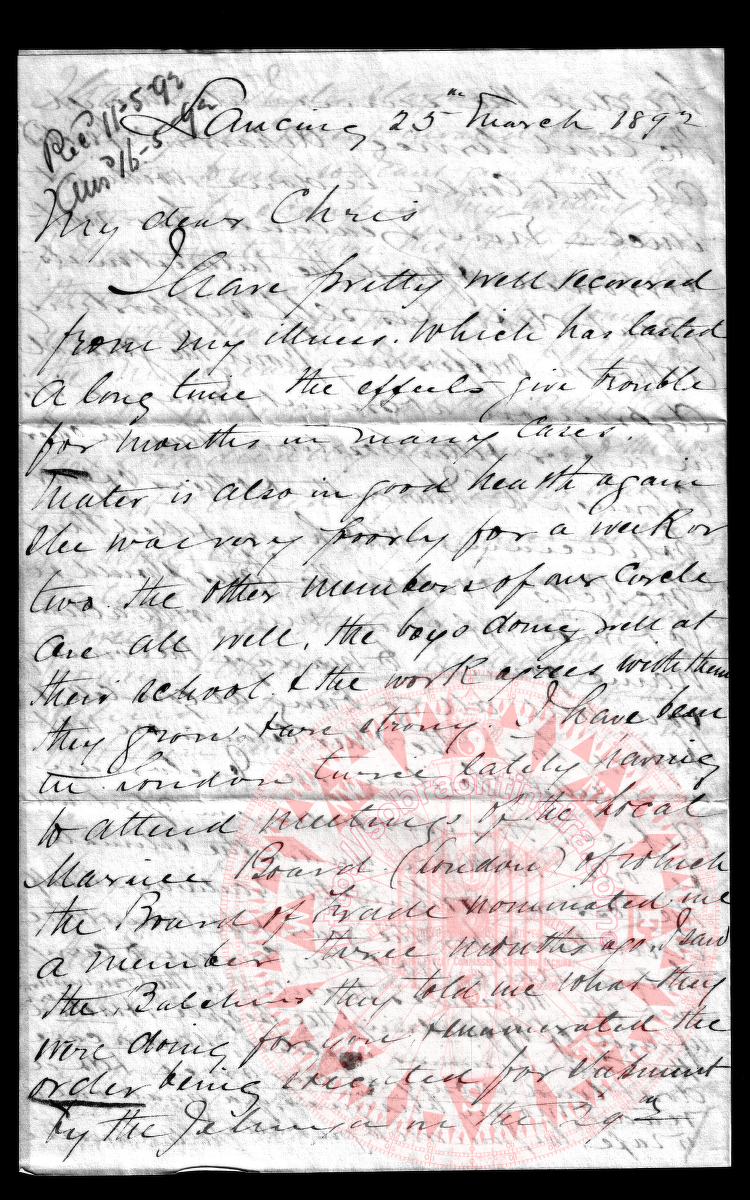 Rec^d 11-5-92
Ans^d 16-5-92
Lancing 25th March 1892
My dear Chris
I have pretty well recovered
from my illness. Which has lasted
a long time the effects give trouble
for months in many cases.
Mater is also in good health again
She was very poorly for a week or
two. the other members of our Circle
are all well, the boys doing well at
their school. & the work agrees with them
they grow & are strong. I have been
in London twice lately having
to attend meetings of the Local
Marine Board (London) of which
the Board of Trade nominated me
a member three months ago. I saw
the Balchins they told me what they
were doing for you & enumerated the
order being executed for shipment
by the Jelunga on the 29th